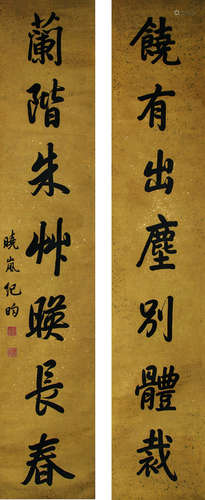 饒有出塵別體裁
蘭階朱艸暎長春
曉嵐紀昀